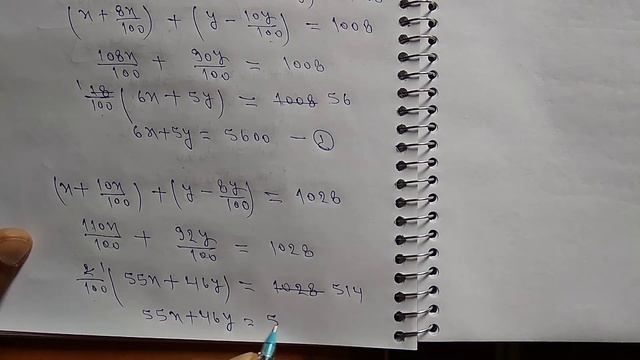 (x + 8x/100) + (y - 10y/100) = 1008
108x/100 + 90y/100 = 1008
1 18/100 (6x + 5y) = 1008 56
6x + 5y = 5600 - ①
(x + 10x/100) + (y - 8y/100) = 1028
110x/100 + 92y/100 = 1028
2 1/100 (55x + 46y) = 1028 514
55x + 46y = 5